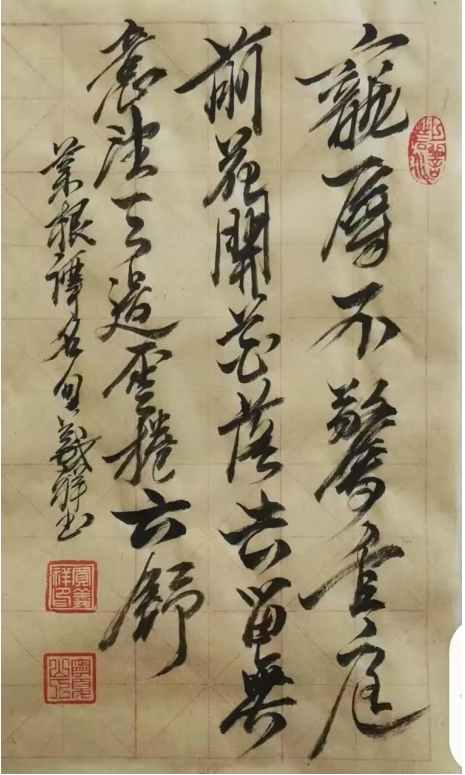 寵辱不驚看庭
前花開花落去留無
意望天邊雲捲云舒
菜根譚名句義祥書